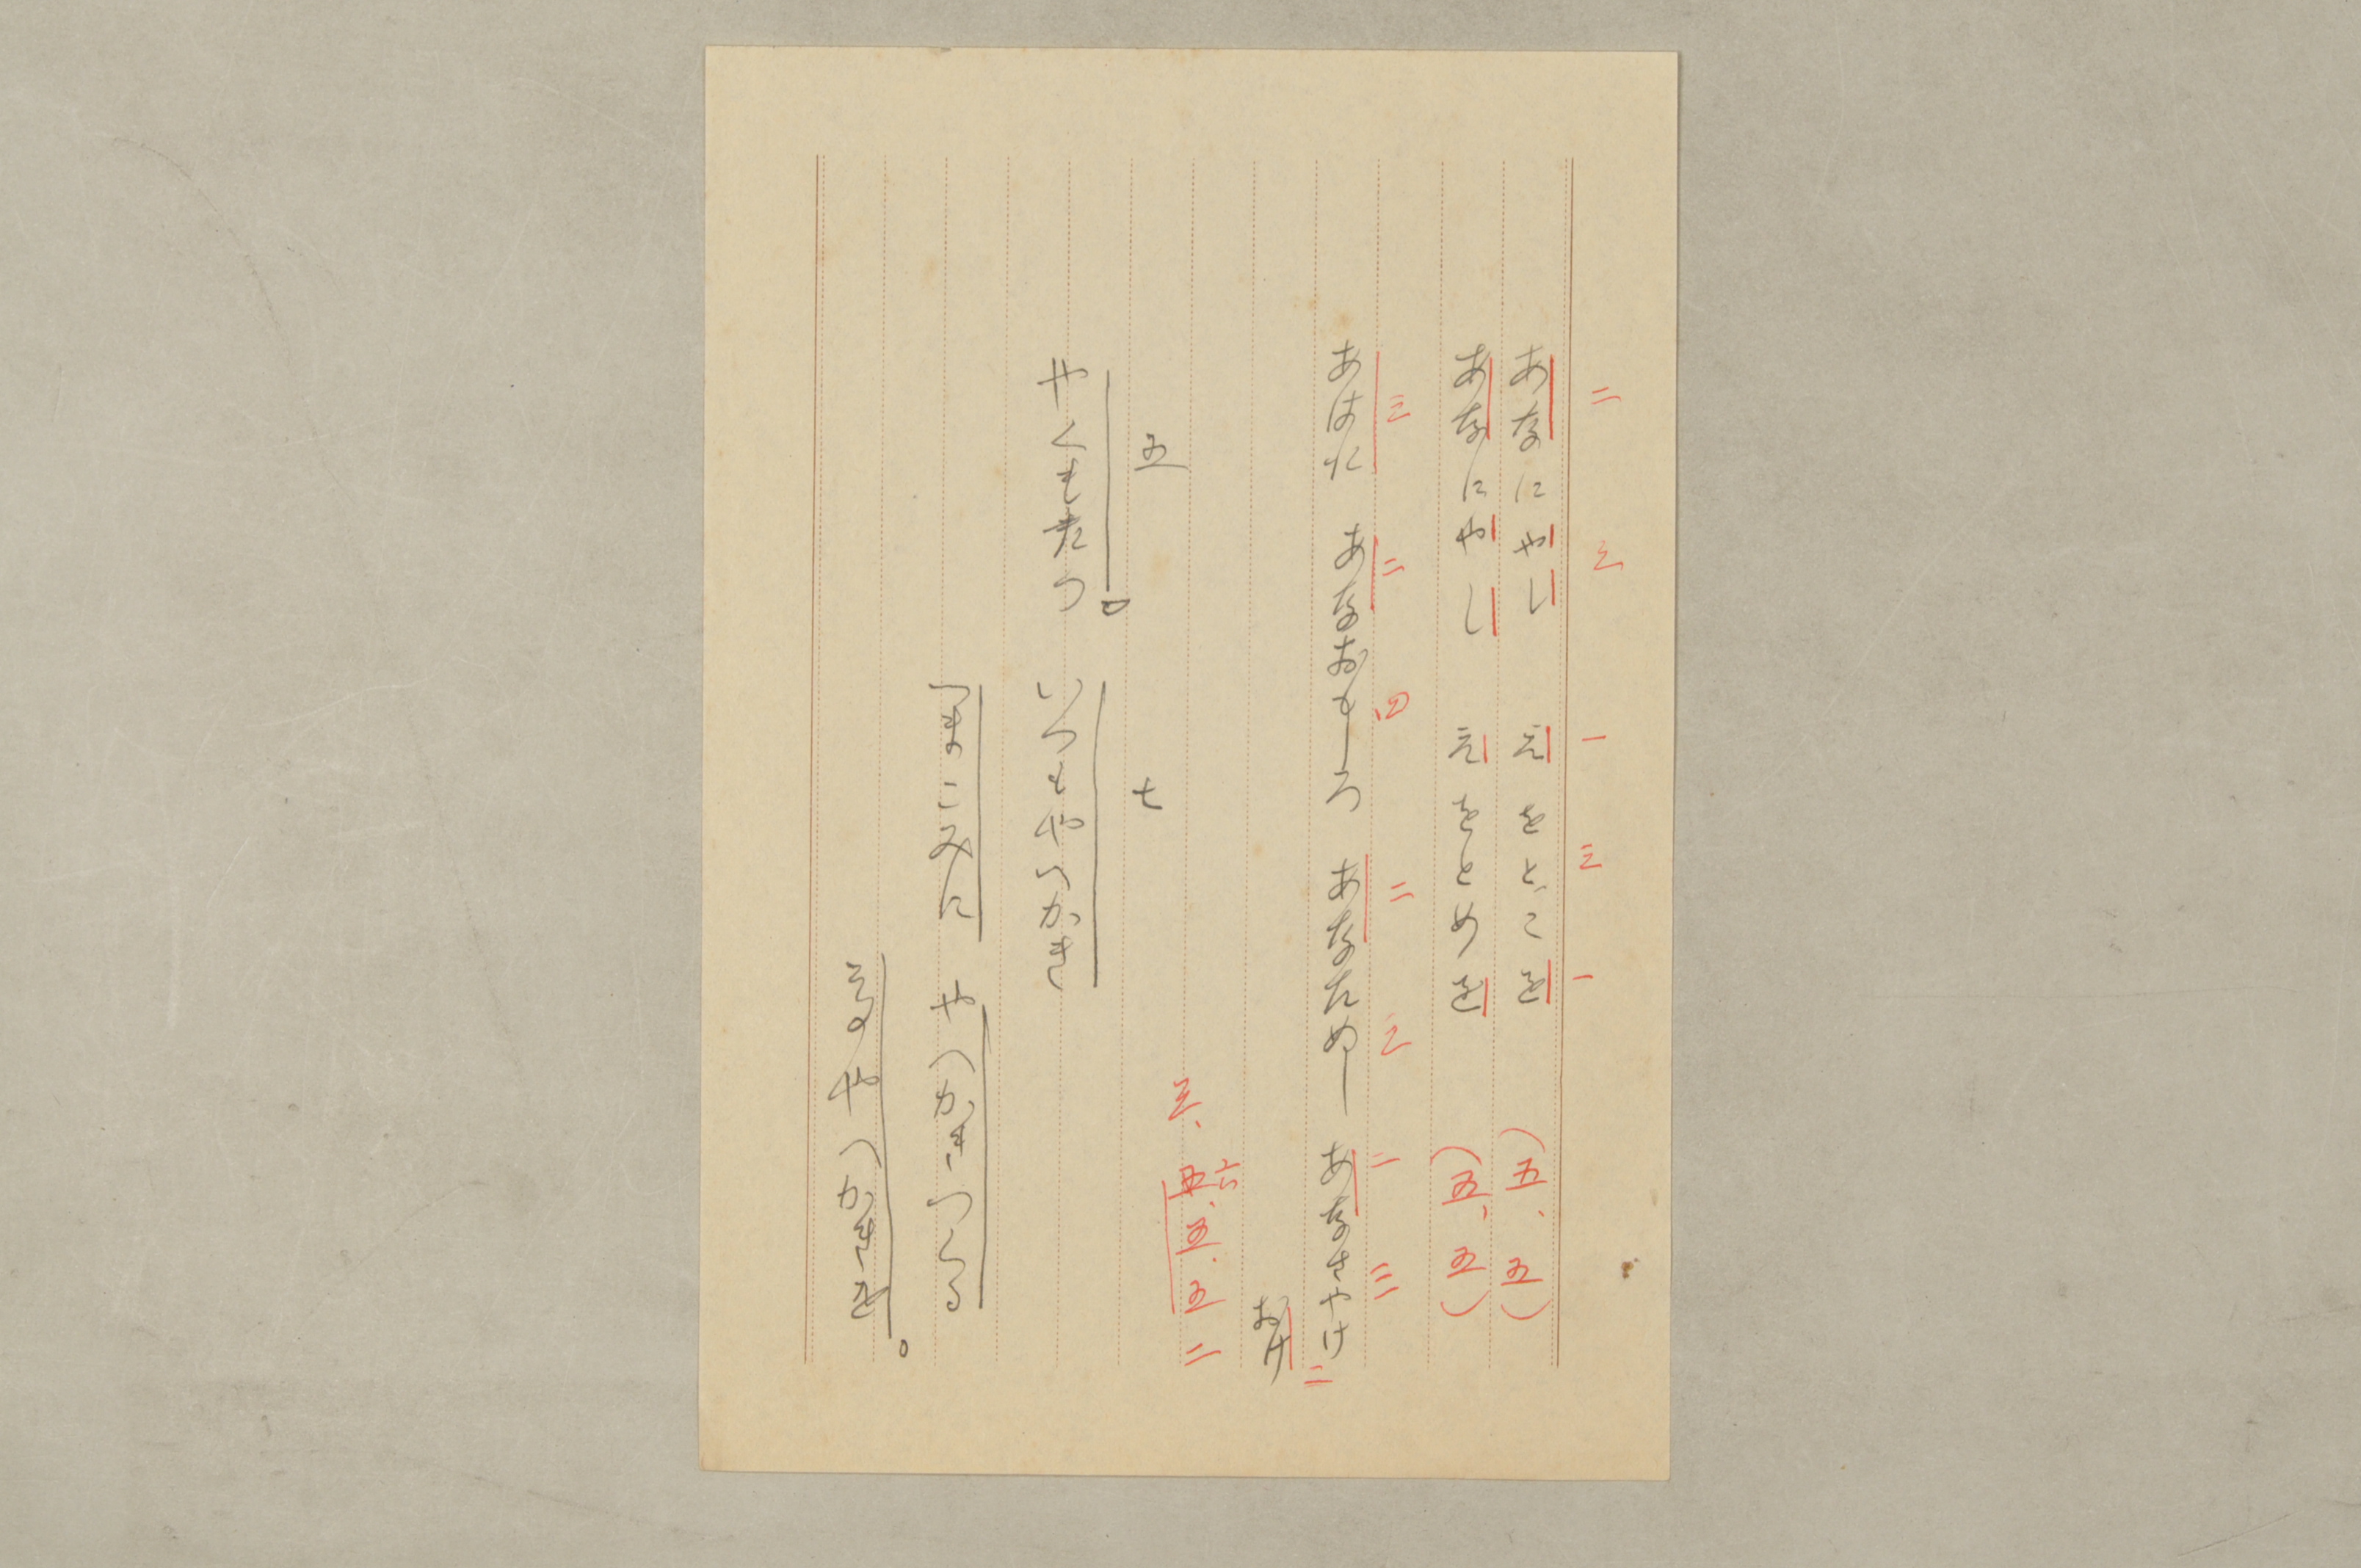 二 三 一 三 一
あなにやし えをとこを (五、五)
あなにやし えをとめを (五、五)
三 二 四 二 三 二 三
あはれ あなおもしろ あなたぬし あなさやけ
おけ 二
六
三、五、五、五 二
五 七
やくもたつ いつもやつかき
つまこみに やつかきつくる
そのやつかきを。